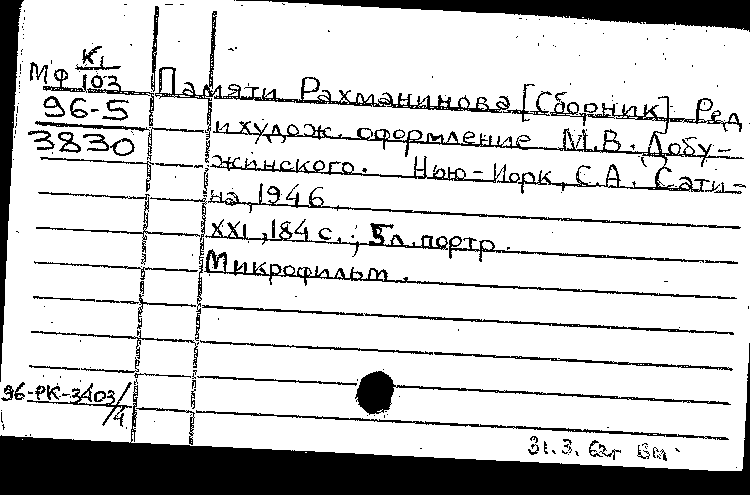 К1
МФ 103
96-5
3830
Памяти Рахманинова [Сборник] Ред
и худож. оформление М.В. Добу-
жинского. Нью-Иорк, С.А. Сати-
на, 1946.
XXI, 184 с.; 5 л. портр.
Микрофильм.
96-РК-3403/4
31.3.62г ВМ